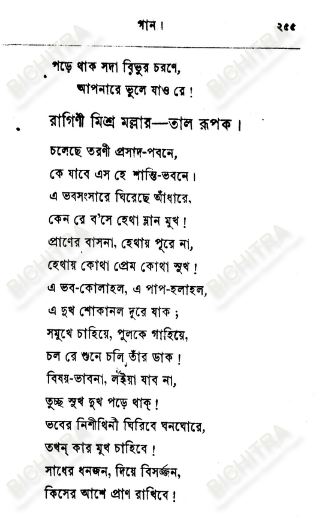 গান।
২৫৫
পড়ে থাক সদা বিভুর চরণে,
আপনারে ভুলে যাও রে!
রাগিণী মিশ্র মল্লার—তাল রূপক।
চলেছে তরণী প্রসাদ-পবনে,
কে যাবে এস হে শান্তি-ভবনে।
এ ভবসংসারে ঘিরেছে আঁধারে,
কেন রে ব'সে হেথা ম্লান মুখ!
প্রাণের বাসনা, হেথায় পূরে না,
হেথায় কোথা প্রেম কোথা সুখ!
এ ভব-কোলাহল, এ পাপ-হলাহল,
এ দুখ শোকানল দূরে যাক;
সমুখে চাহিয়ে, পুলকে গাহিয়ে,
চল রে শুনে চলি তাঁর ডাক!
বিষয়-ভাবনা, লইয়া যাব না,
তুচ্ছ সুখ দুখ পড়ে থাক্!
ভবের নিশীথিনী ঘিরিবে ঘনঘোরে,
তখন্ কার মুখ চাহিবে!
সাধের ধনজন, দিয়ে বিসর্জ্জন,
কিসের আশে প্রাণ রাখিবে!
BICHITRA